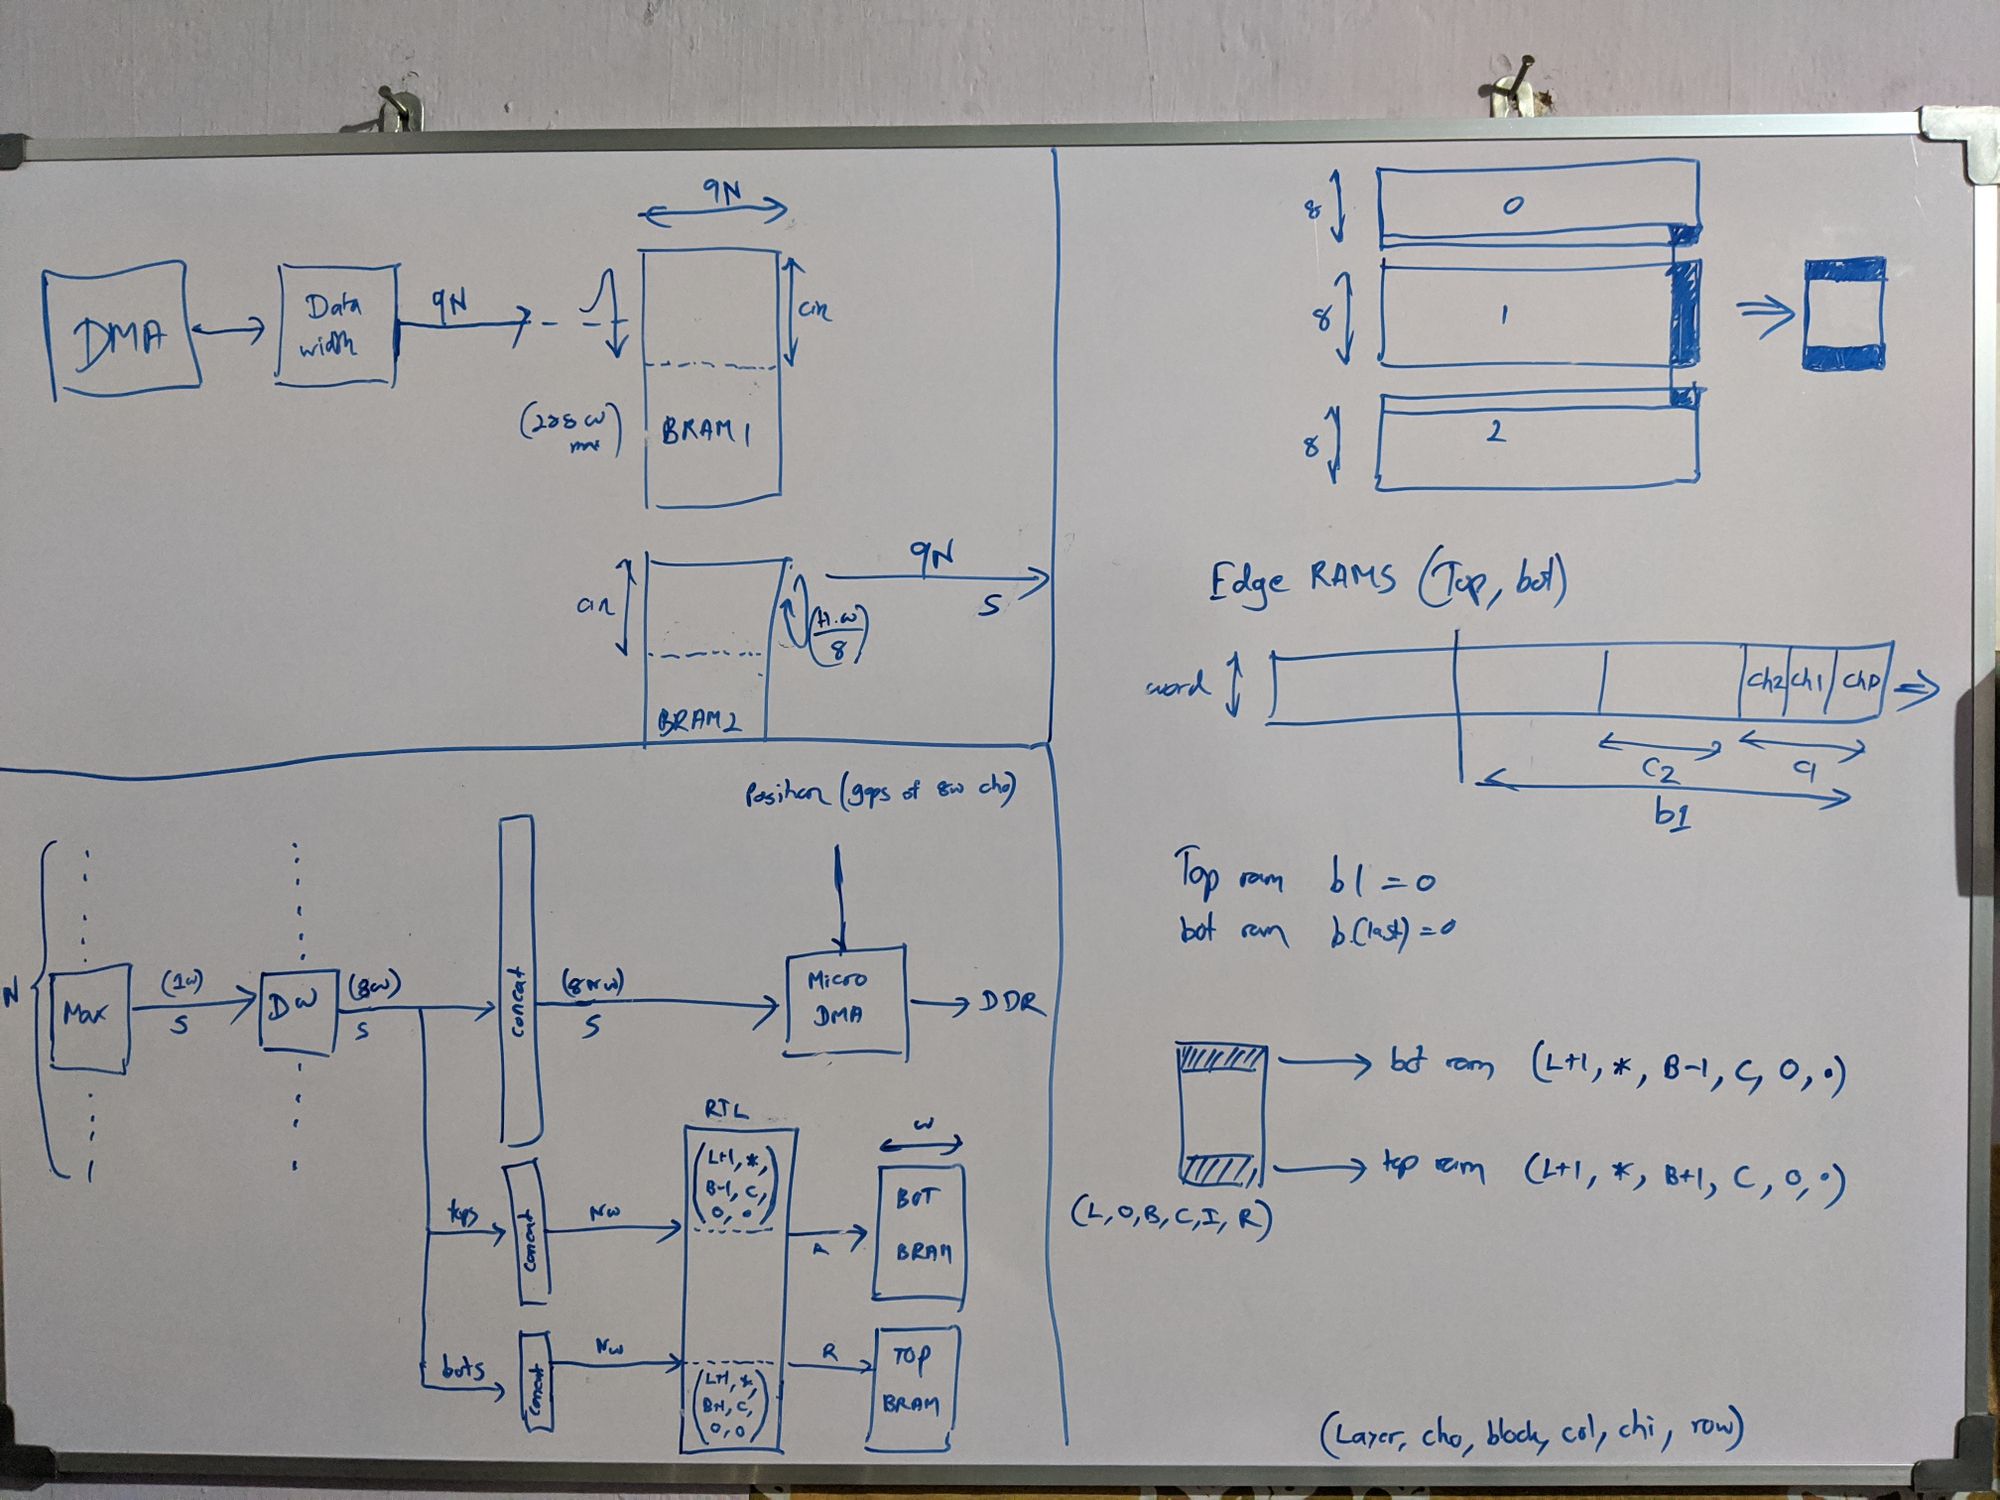 9N
DMA
Data
width
9N
cin
(288 w
max)
BRAM1
9N
S
cin
(H.w
8)
BRAM2
8
0
8
1
8
2
Edge RAMS (Top, bot)
word
ch2 ch1 ch0
C2
C1
b1
Top ram b1 = 0
bot ram b(last) = 0
bot ram (L+1, *, B-1, C, 0, •)
top ram (L+1, *, B+1, C, 0, •)
(L, O, B, C, I, R)
(Layer, cho, block, col, chi, row)
Position (gaps of 8w cho)
N
Max
(1w)
S
DW
(8w)
S
concat
(8Nw)
S
Micro
DMA
DDR
RTL
tops
concat
Nw
(L+1, *,
B-1, C,
0, 0)
R
w
BOT
BRAM
bots
concat
Nw
(L+1, *
B+1, C,
0, 0)
R
TOP
BRAM